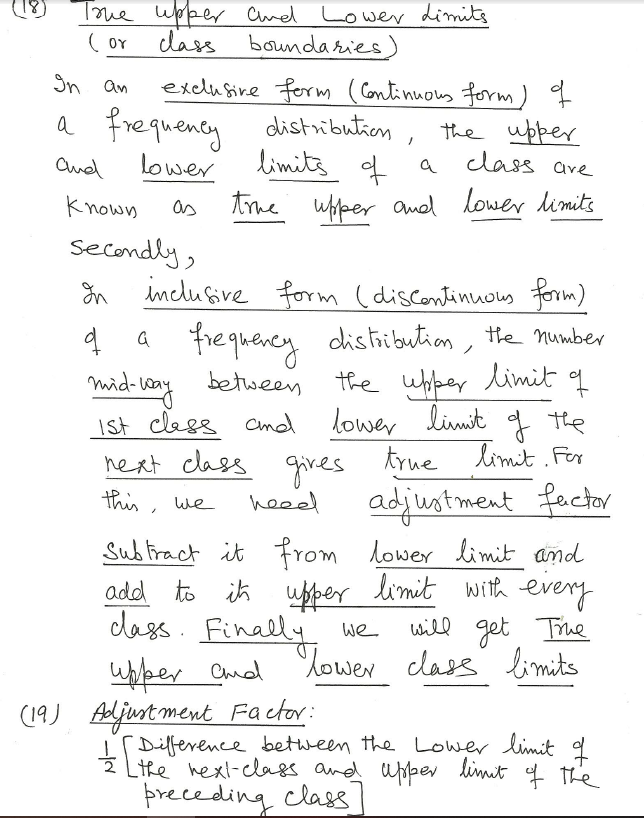 (18) True upper and Lower Limits
(or class boundaries)
In an exclusive form (Continuous form) of
a frequency distribution, the upper
and lower limits of a class are
known as true upper and lower limits
Secondly,
In inclusive form (discontinuous form)
of a frequency distribution, the number
mid-way between the upper limit of
1st class and lower limit of the
next class gives true limit. For
this, we need adjustment factor
Subtract it from lower limit and
add to its upper limit with every
class. Finally we will get True
upper and lower class limits
(19) Adjustment Factor:
1/2 [Difference between the Lower limit of
the next-class and upper limit of the
preceding class]